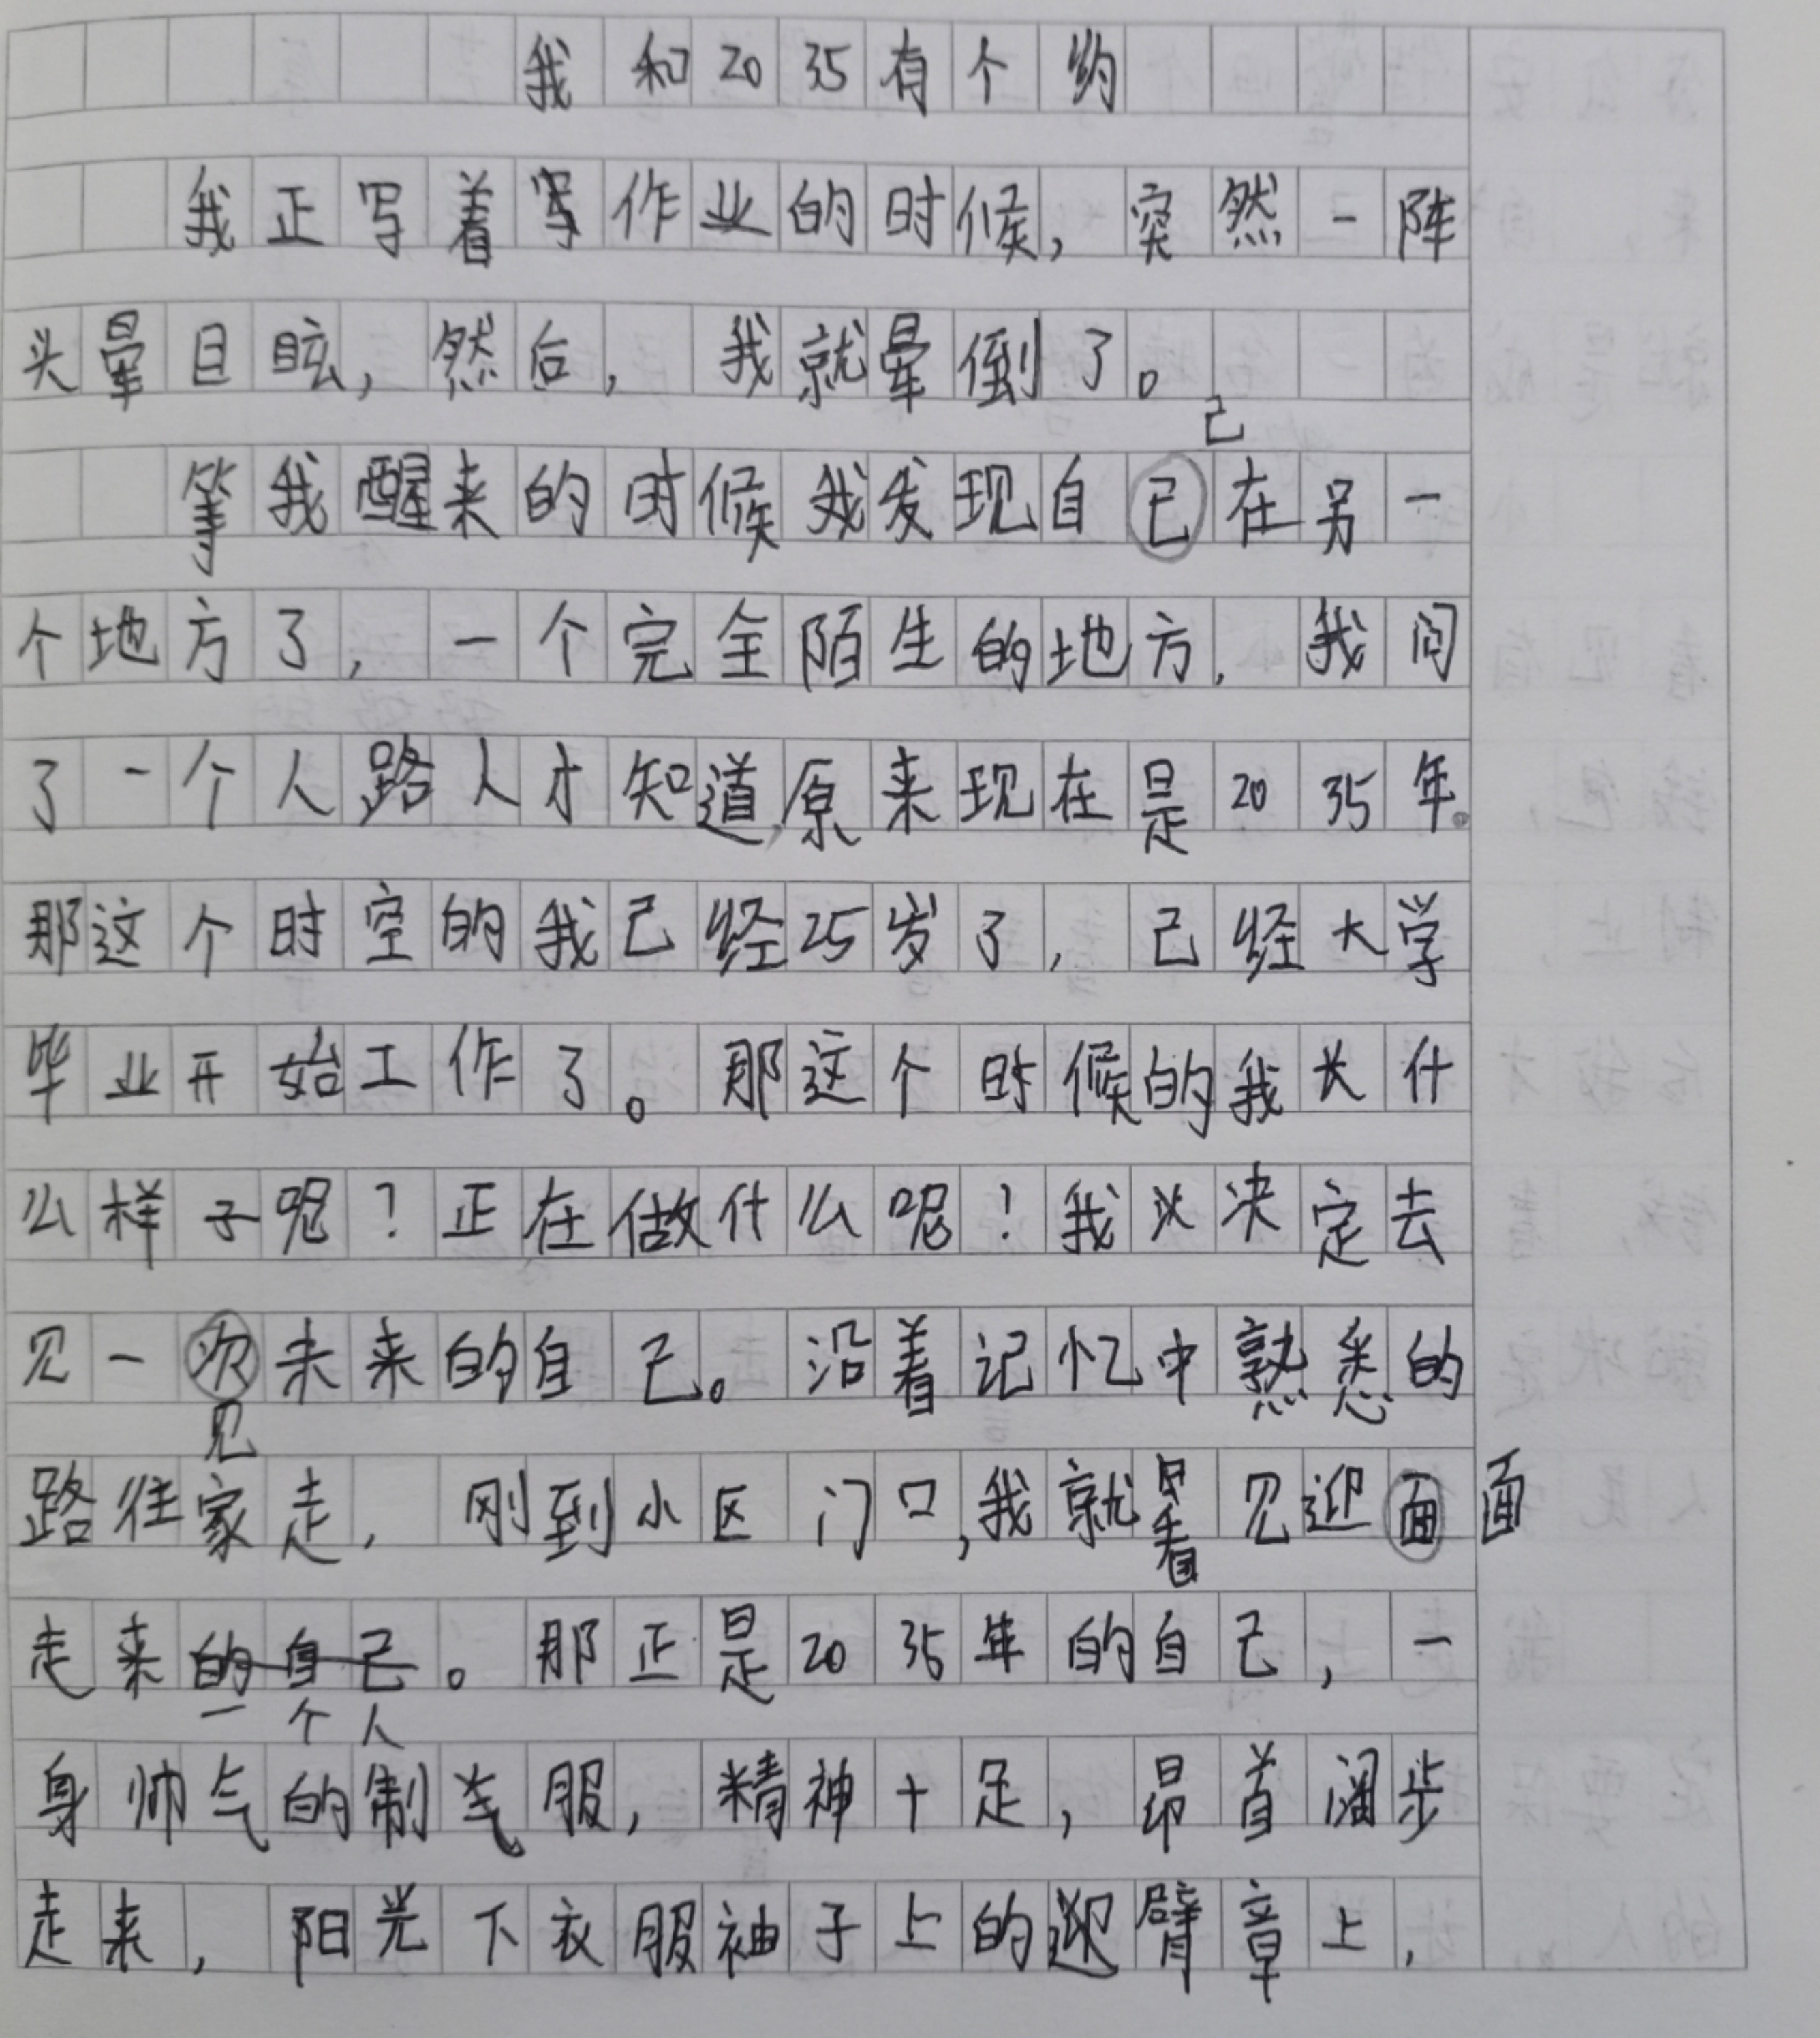 我和2035有个约
我正写着写作业的时候,突然一阵
头晕目眩,然后,我就晕倒了。
己
等我醒来的时候我发现自己在另一
个地方了,一个完全陌生的地方,我问
了一个人路人才知道,原来现在是2035年。
那这个时空的我已经25岁了,已经大学
毕业开始工作了。那这个时候的我长什
么样子呢?正在做什么呢!我决定去
见一次未来的自己。沿着记忆中熟悉的
见
路往家走,刚到小区门口,我就看见迎面面
走来的自己。那正是2035年的自己,一
一个人
身帅气的制服,精神十足,昂首阔步
走来,阳光下衣服袖子上的臂章上,